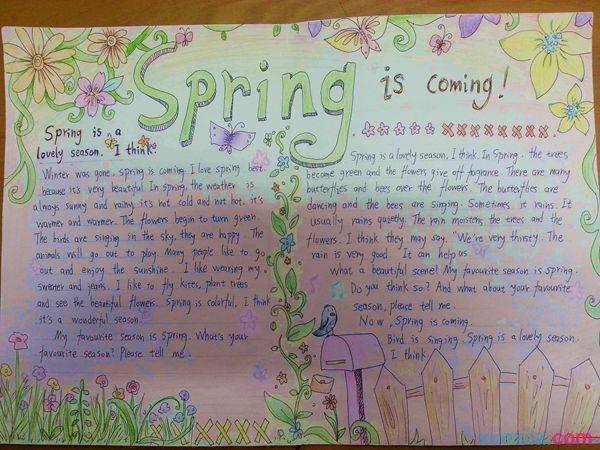 Spring is coming!
Spring is a
lovely season. I think.
Winter was gone. spring is coming. I love spring best.
because it's very beautiful. In spring, the weather is
always sunny and rainy, it's not cold and not hot. it's
warmer and warmer. The flowers begin to turn green.
The birds are singing in the sky, they are happy. The
animals will go out to play. Many people like to go
out and enjoy the sunshine. I like wearing my
sweater and jeans. I like to fly kites, plant trees
and see the beautiful flowers. Spring is colorful, I think
it's a wonderful season.
My favourite season is Spring. What's your
favourite season? Please tell me.
Spring is a lovely season, I think. In Spring. the trees
become green and the flowers give off fragrance. There are many
butterflies and bees over the flowers. The butterflies are
dancing and the bees are singing. Sometimes it rains. It
usually rains quietly. The rain moistens the trees and the
flowers. I think they may say. "We're very thirsty. The
rain is very good." It can help us.
What a beautiful scene! My favourite season is spring.
Do you think so? And what about your favourite
season, please tell me.
Now, Spring is coming.
Bird is singing. Spring is a lovely season.
I think.